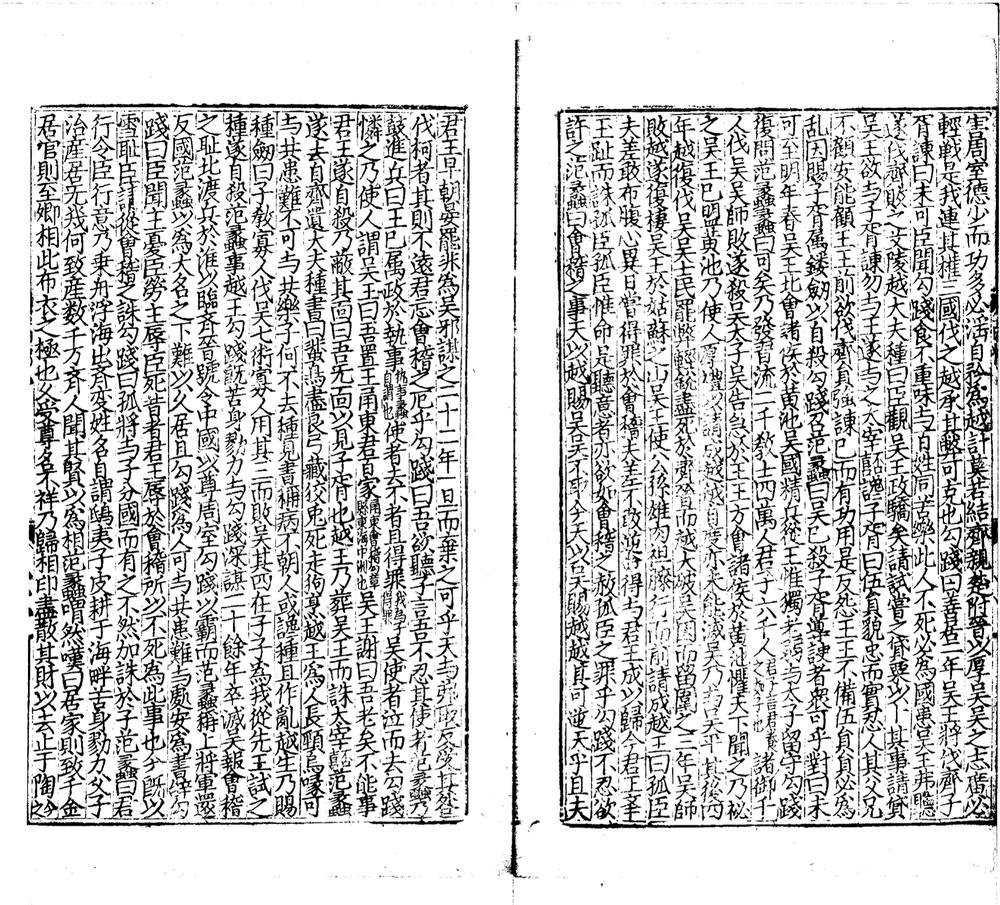 害周室德少而功多必活自矜為越計莫若結齊親楚附晉以厚吳吳之志廣必
輕戰是我連其權三國伐之越承其弊可克也勾踐曰善居二年吳王將伐齊子
胥諫曰未可臣聞勾踐食不重味与百姓同苦樂此人不死必為國患吳王弗聽
遂伐齊敗之艾陵越大夫種曰臣觀吳王政驕矣請試嘗之貸粟以卜其事請貸
吳王欲与子胥諫勿与王遂与之太宰嚭讒子胥曰伍員貌忠而實忍人其父兄
不顧安能顧王王前欲伐齊員強諫已而有功用是反怨王王不備伍員員必為
亂因賜子胥屬鏤劒以自殺勾踐召范蠡曰吳已殺子胥導諛者衆可乎對曰未
可至明年春吳王北會諸侯於黄池吳國精兵從王惟獨老弱与太子留守勾踐
復問范蠡蠡曰可矣乃發習流二千教士四萬人君子六千人君子言君養之如子也諸御千
人伐吳吳師敗遂殺吳太子吳告急於王王方會諸侯於黄池懼天下聞之乃祕
之吳王已盟黄池乃使人厚禮以請成越越自度亦未能滅吳乃与吳平其後四
年越復伐吳吳士民罷弊輕銳盡死於齊晉而越大破吳因而留圍之二年吳師
敗越遂復棲吳王於姑蘇之山吳王使公孫雄肉袒膝行而前請成越王曰孤臣
夫差敢布腹心異日嘗得罪於會稽夫差不敢逆命得与君王成以歸今君王
玉趾而誅孤臣孤臣惟命是聽意者亦欲如會稽之赦孤臣之罪乎勾踐不忍欲
許之范蠡曰會稽之事天以越賜吳吳不取今天以吳賜越越其可逆天乎且夫
君王早朝晏罷非為吳邪謀之二十二年一旦而棄之可乎天与弗取反受其咎
伐柯者其則不遠君忘會稽之厄乎勾踐曰吾欲聽子言吾不忍其使者范蠡乃
鼓進兵曰王已属政於執事執事蠡自謂也使者去不者且得罪吳使者泣而去勾踐
憐之乃使人謂吳王曰吾置王甬東君百家吳王謝曰吾老矣不能事
君王遂自殺乃蔽其面曰吾无面以見子胥也越王乃葬吳王而誅太宰嚭范蠡
遂去自齊遺大夫種書曰蜚鳥盡良弓藏狡兎死走狗烹越王為人長頸鳥喙可
与共患難不可与共樂子何不去種見書稱病不朝人或讒種且作亂越王乃賜
種劒曰子教寡人伐吳七術寡人用其三而敗吳其四在子子為我從先王試之
種遂自殺范蠡事越王勾踐既苦身勠力与勾踐深謀二十餘年卒滅吳報會稽
之耻北渡兵於淮以臨齊晉號令中國以尊周室勾踐以霸而范蠡稱上將軍還
反國范蠡以為大名之下難以久居且勾踐為人可与共患難与處安為書辭勾
踐曰臣聞主憂臣勞主辱臣死昔者君王辱於會稽所以不死為此事也今旣以
雪耻臣請從會稽之誅勾踐曰孤將与子分國而有之不然加誅於子范蠡曰君
行令臣行意乃乗舟浮海出齊变姓名自謂鴟夷子皮耕于海畔苦身勠力父子
治産居无幾何致産数千万齊人聞其賢以為相范蠡喟然嘆曰居家則致千金
居官則至卿相此布衣之極也久受尊名不祥乃歸相印盡散其財以去止于陶